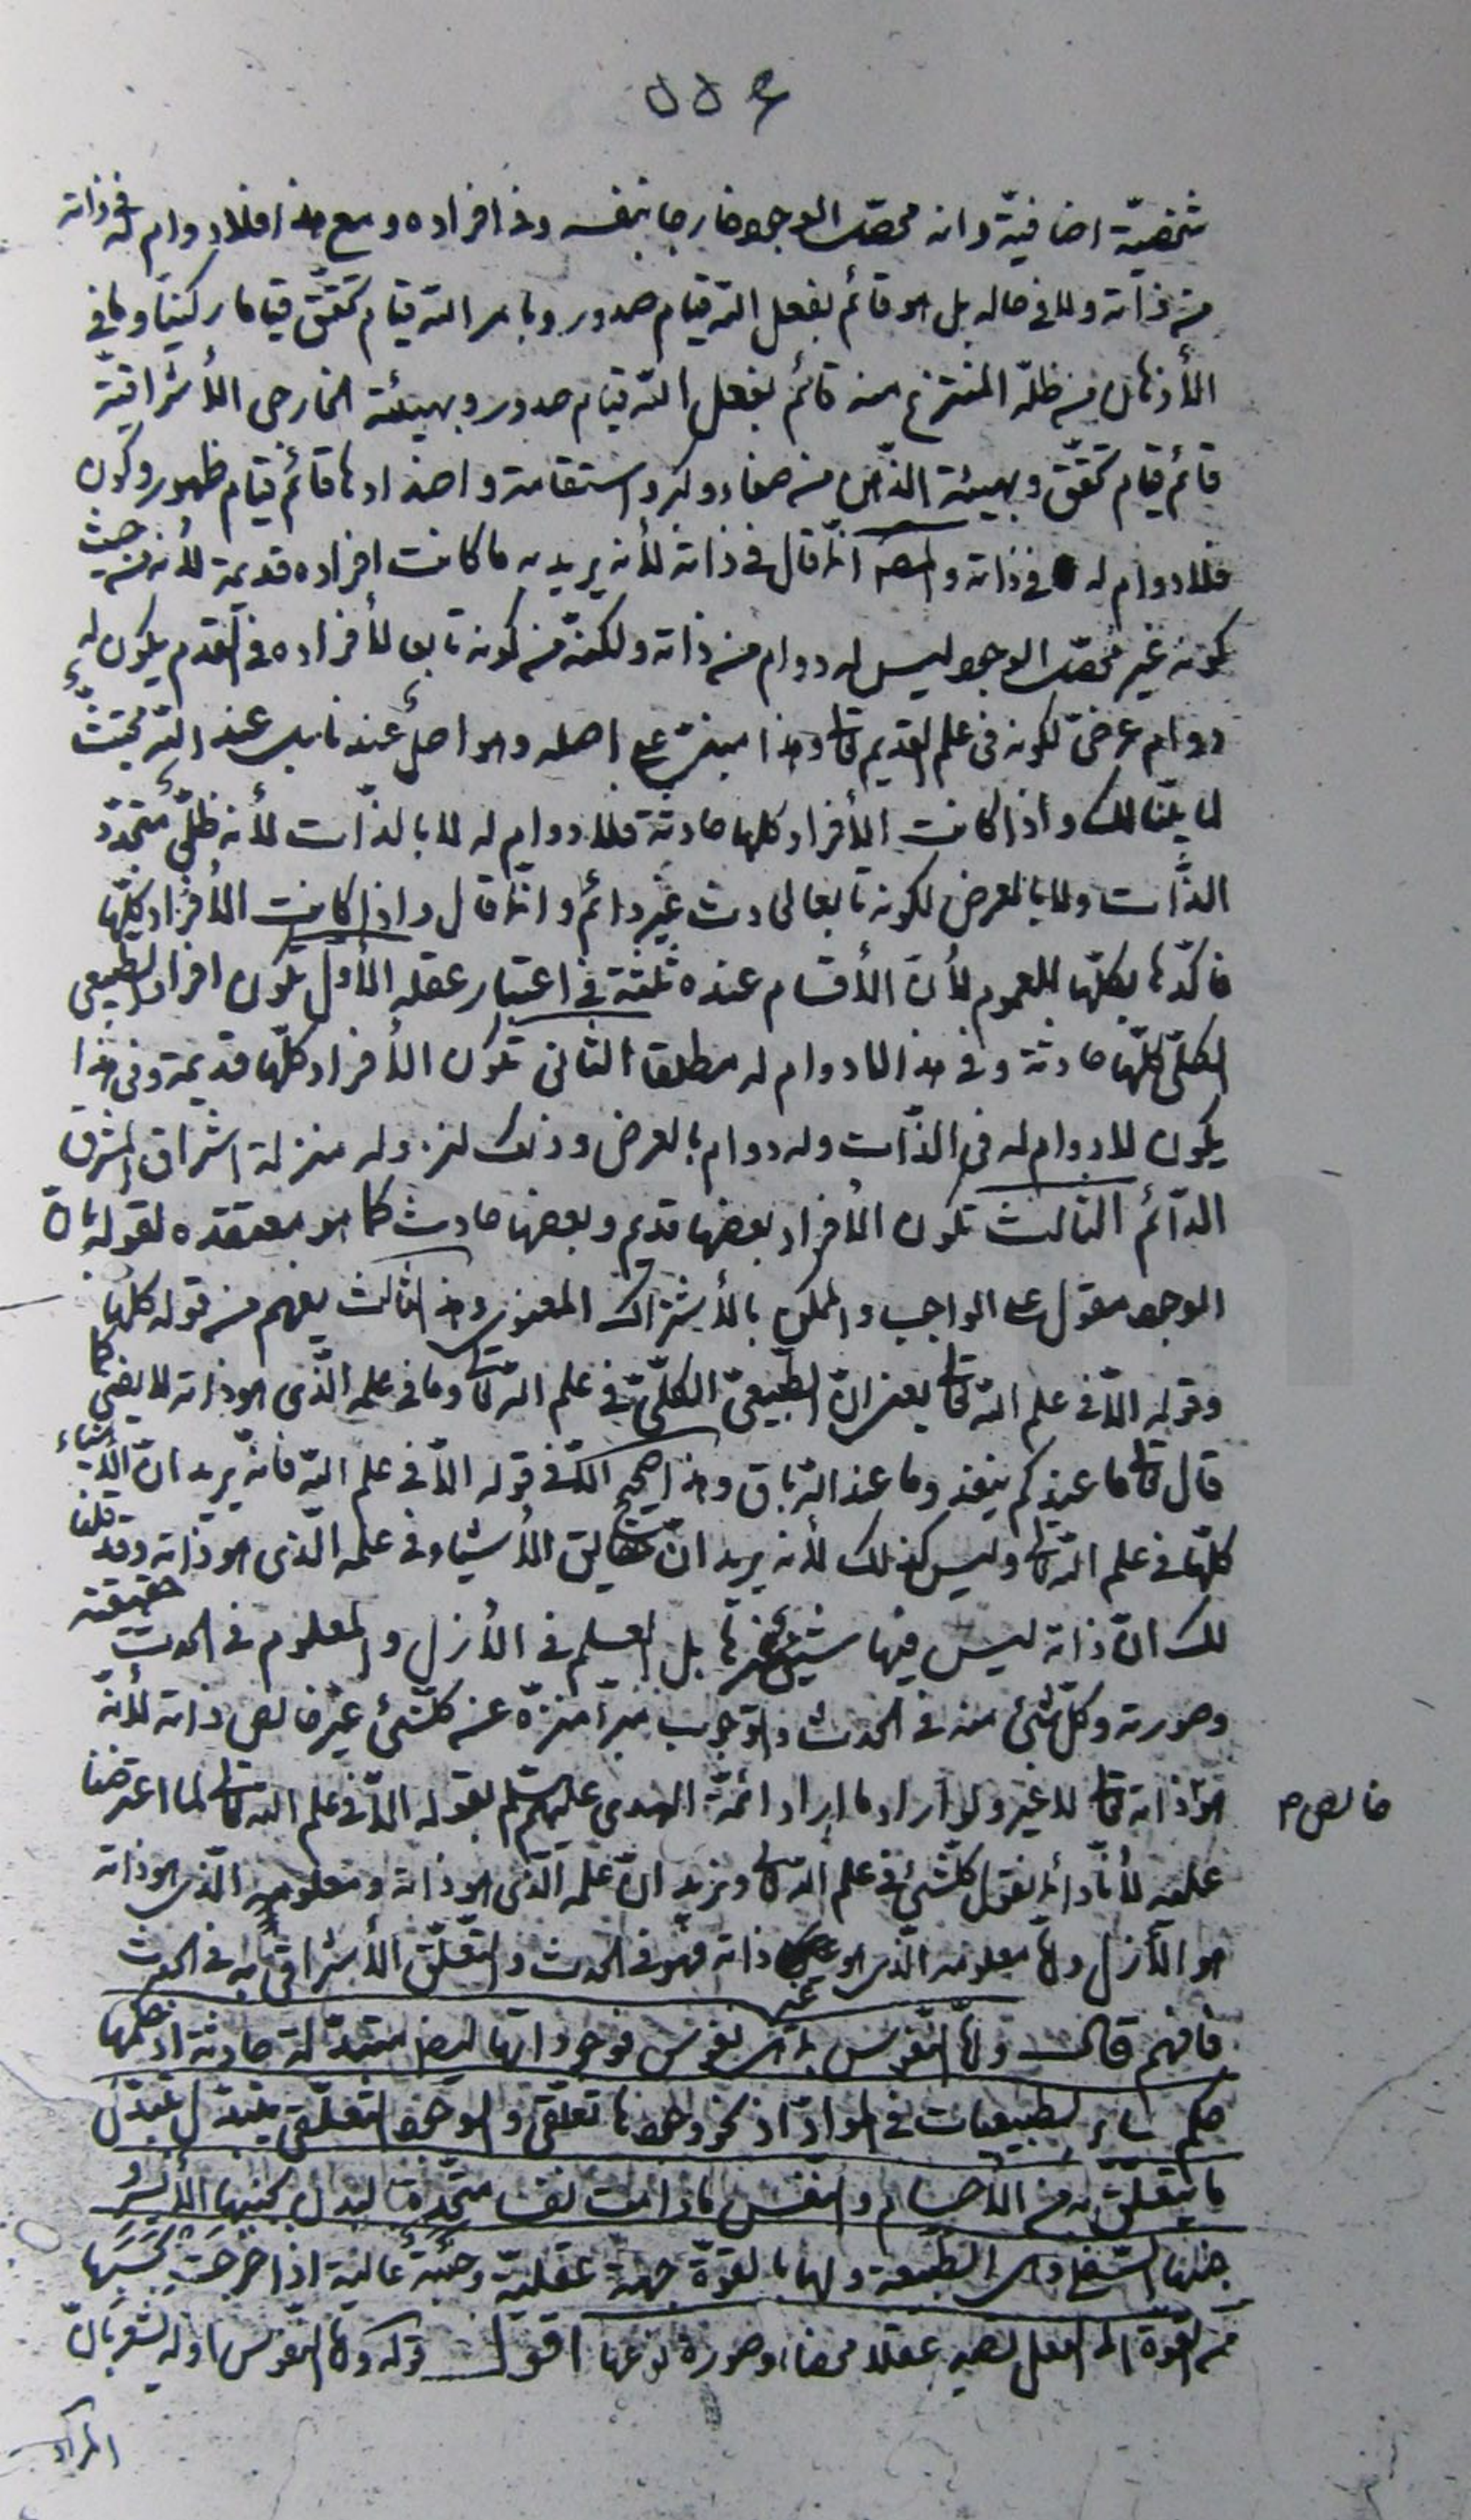 شخصيّة اضافيّة وانه محصّل الوجود خارجا بنفسه وفى افراده ومع هذا فلا دوام له فى ذاته
من ذاته ولا فى حاله بل هو قائم بفعل اللّه قيام صدور وبامر اللّه قيام تحقّق قياما ركنيّا وما فى
الأذهان من ظلّه المنتزع منه قائم بفعل اللّه قيام صدور وبهيئة الخارجى الأشراقيّة
قائم قيام تحقّق وبهيئة الذّهن من صفاء وكدر واستقامة واضدادها قائم قيام ظهور وكون
فلا دوام له فى ذاته والمصـ انّما قال فى ذاته لأنه يريد به ما كانت افراده قديمة لأنه من حيث
كونه غير محصّل الوجود ليس له دوام من ذاته ولكنّه من كونه تابعا لأفراده فى القدم يكون له
دوام عرضىّ لكونه فى علم القديم تعا وهذا مبنىّ على اصله وهو اصل عنده ثابت عند اللّه مجتثّ
لما بيّنا لك واذا كانت الأفراد كلها حادثة فلا دوام له لا بالذّات لأنه ظلّىّ متجدّد
الذّات ولا بالعرض لكونه تابعا لحادث غير دائم وانّما قال واذا كانت الأفراد كلّها
فاكّدها بكلّها للعموم لأنّ الأقسام عنده ثلثة فى اعتبار عقله الأول تكون افراد الطبيعى
الكلّى كلّها حادثة وفى هذا لا دوام له مطلقا الثانى تكون الأفراد كلّها قديمة وفى هذا
يكون لا دوام له فى الذّات وله دوام بالعرض وذلك لنزوله منزلة اشراق المشرق
الدّائم الثالث تكون الأفراد بعضها قديم وبعضها حادث كما هو معتقده لقوله بانّ
الوجود مقول على الواجب والممكن بالأشتراك المعنوى وهذا الثالث يفهم من قوله كلها
وقوله الّا فى علم اللّه تعا يعنى انّ الطّبيعىّ الكلّىّ فى علم اللّه تعا وما فى علمه الّذى هو ذاته لا يفنى كما
قال تعا ما عندكم ينفد وما عند اللّه باق وهذا صحيح الّا فى قوله الّا فى علم اللّه فانّه يريد انّ الأشياء
كلّها فى علم اللّه تعا وليس كذلك لأنه يريد انّ حقايق الأشياء فى علمه الّذى هو ذاته وقد قلنا
لك انّ ذاته ليس فيها شيئ غيرها بل العلم فى الأزل والمعلوم فى الحدث حقيقته
وصورته وكلّ شئ منه فى الحدث والوجوب مبرّأ منزّه عن كلّشئ غير خالص ذاته لأنّه
هو ذاته تعا لا غير ولو اراد ما اراد ائمّة الهدى عليهم السّلم بقوله الّا فى علم اللّه تعا لما اعترضنا
خالص م
عليه لأنا دائما نقول كلّشئ فى علم اللّه تعا ونريد انّ علمه الّذى هو ذاته ومعلومه الّذى هو ذاته
هو الأزل وامّا معلومه الّذى هو غير ذاته فهو فى الحدث والتعلّق الأشراقى به فى الحدث
فافهم قال وامّا النّفوس بما هى نفوس فوجوداتها ايضا متبدّلة حادثة اذ حكمها
حكم ساير الطبيعيات فى الموادّ اذ نحو وجودها تعلّقى والوجود التعلّقى يتبدّل بتبدّل
ما يتعلّق به من الأجسام والنفس ما دامت نفسا متّحدة لبدن بجنبها الأيسر و
جنبها السّفلى وهى الطّبيعة ولها بالقوّة جهة عقليّة وجنبة عالية اذا خرجت بحسبها
من القوّة الى الفعل تصير عقلا محضا وصورة نوعها اقول قوله وامّا النّفوس اوله يشعر بانّ
المراد